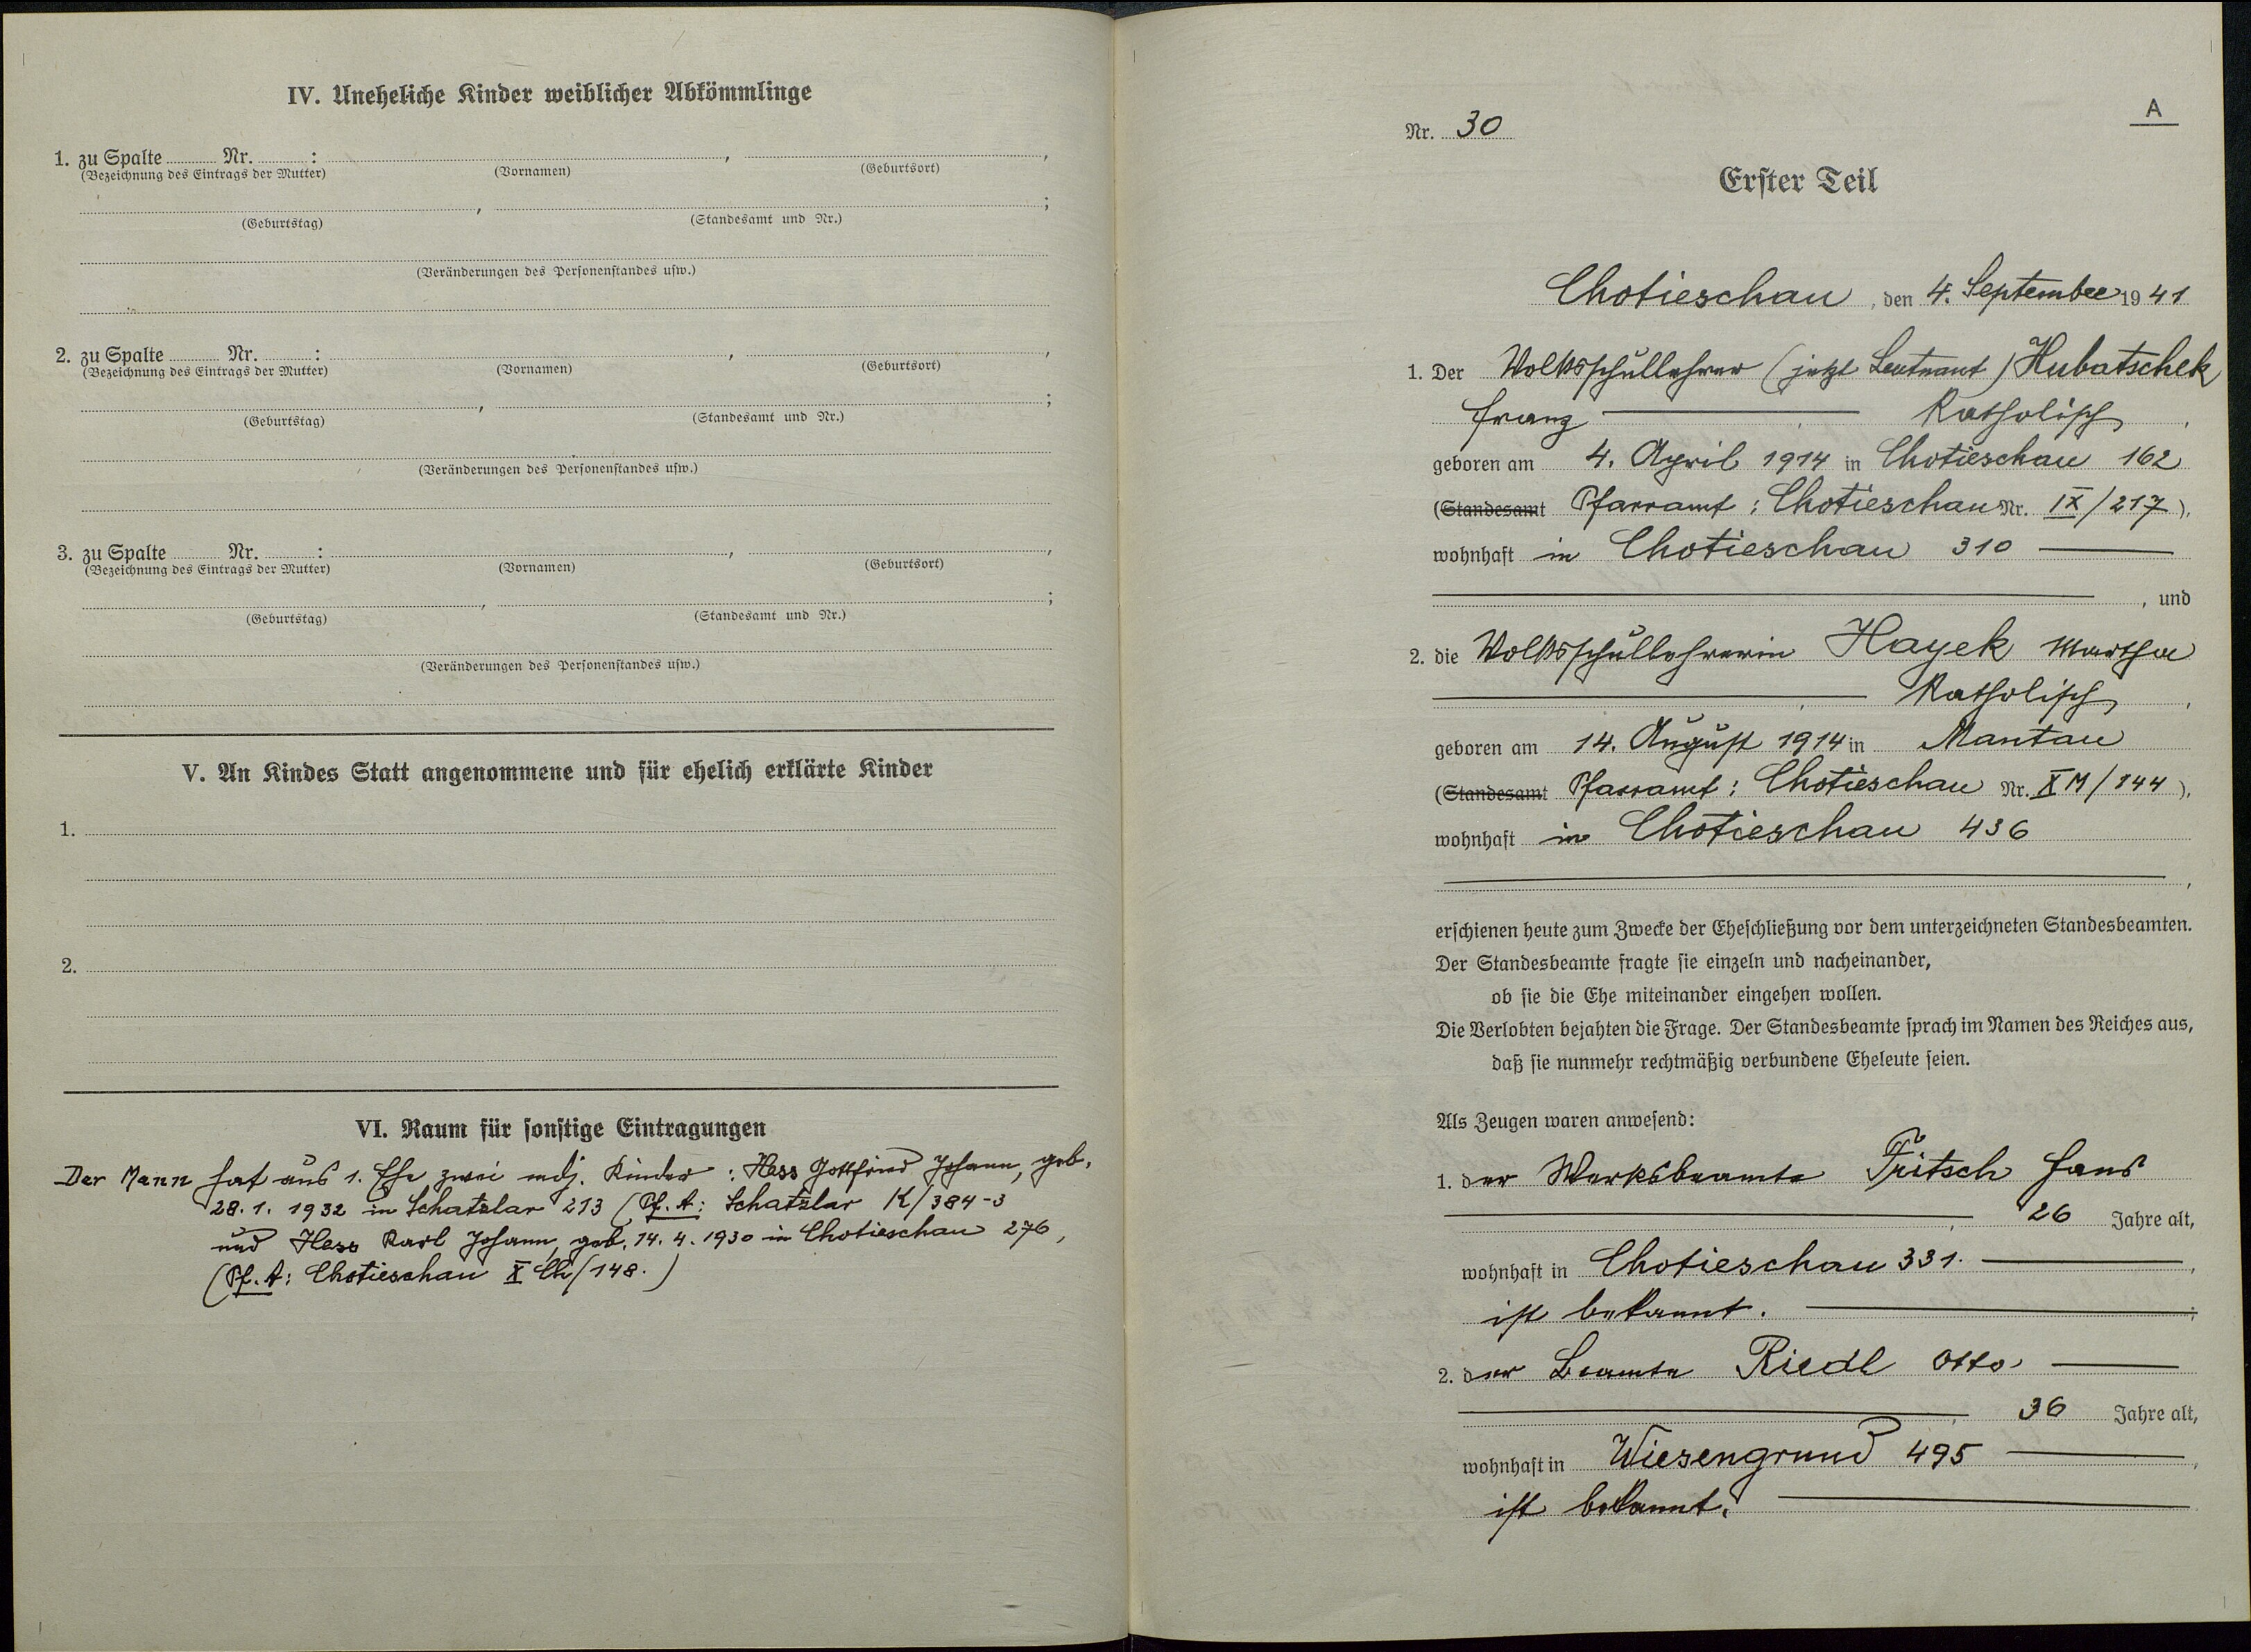 IV. Uneheliche Kinder weiblicher Abkömmlinge
1. zu Spalte ........ Nr. ........ : ........ , ........ ,
(Bezeichnung des Eintrags der Mutter) (Vornamen) (Geburtsort)
, ;
(Geburtstag) (Standesamt und Nr.)
(Veränderungen des Personenstandes usw.)
2. zu Spalte ........ Nr. ........ : ........ , ........ ,
(Bezeichnung des Eintrags der Mutter) (Vornamen) (Geburtsort)
, ;
(Geburtstag) (Standesamt und Nr.)
(Veränderungen des Personenstandes usw.)
3. zu Spalte ........ Nr. ........ : ........ , ........ ,
(Bezeichnung des Eintrags der Mutter) (Vornamen) (Geburtsort)
, ;
(Geburtstag) (Standesamt und Nr.)
(Veränderungen des Personenstandes usw.)
V. An Kindes Statt angenommene und für ehelich erklärte Kinder
1.
2.
VI. Raum für sonstige Eintragungen
Der Mann hat aus 1. Ehe zwei mdj. Kinder : Hess Gottfried Johann, geb.
28. 1. 1932 in Schatzlar 213 (Pf. A: Schatzlar K/384-3
und Hess Karl Johann, geb. 14. 4. 1930 in Chotieschau 276,
(Pf. A: Chotieschau X Ch/148.)
A
Nr. 30
Erster Teil
Chotieschau, den 4. September 1941
1. Der Volksschullehrer (jetzt Leutnant) Hubatschek
Franz — Katholisch,
geboren am 4. April 1914 in Chotieschau 162
(Standesamt Pfarramt: Chotieschau Nr. IX/217),
wohnhaft in Chotieschau 310 —
, und
2. die Volksschullehrerin Hayek Martha
— Katholisch,
geboren am 14. August 1914 in Mantau
(Standesamt Pfarramt: Chotieschau Nr. X M/144),
wohnhaft in Chotieschau 436
,
erschienen heute zum Zwecke der Eheschließung vor dem unterzeichneten Standesbeamten.
Der Standesbeamte fragte sie einzeln und nacheinander,
ob sie die Ehe miteinander eingehen wollen.
Die Verlobten bejahten die Frage. Der Standesbeamte sprach im Namen des Reiches aus,
daß sie nunmehr rechtmäßig verbundene Eheleute seien.
Als Zeugen waren anwesend:
1. der Werksbeamte Fritsch Hans
, 26 Jahre alt,
wohnhaft in Chotieschau 331. —,
ist bekannt. —;
2. der Beamte Riedl Otto —
, 36 Jahre alt,
wohnhaft in Wiesengrund 495 —,
ist bekannt. —